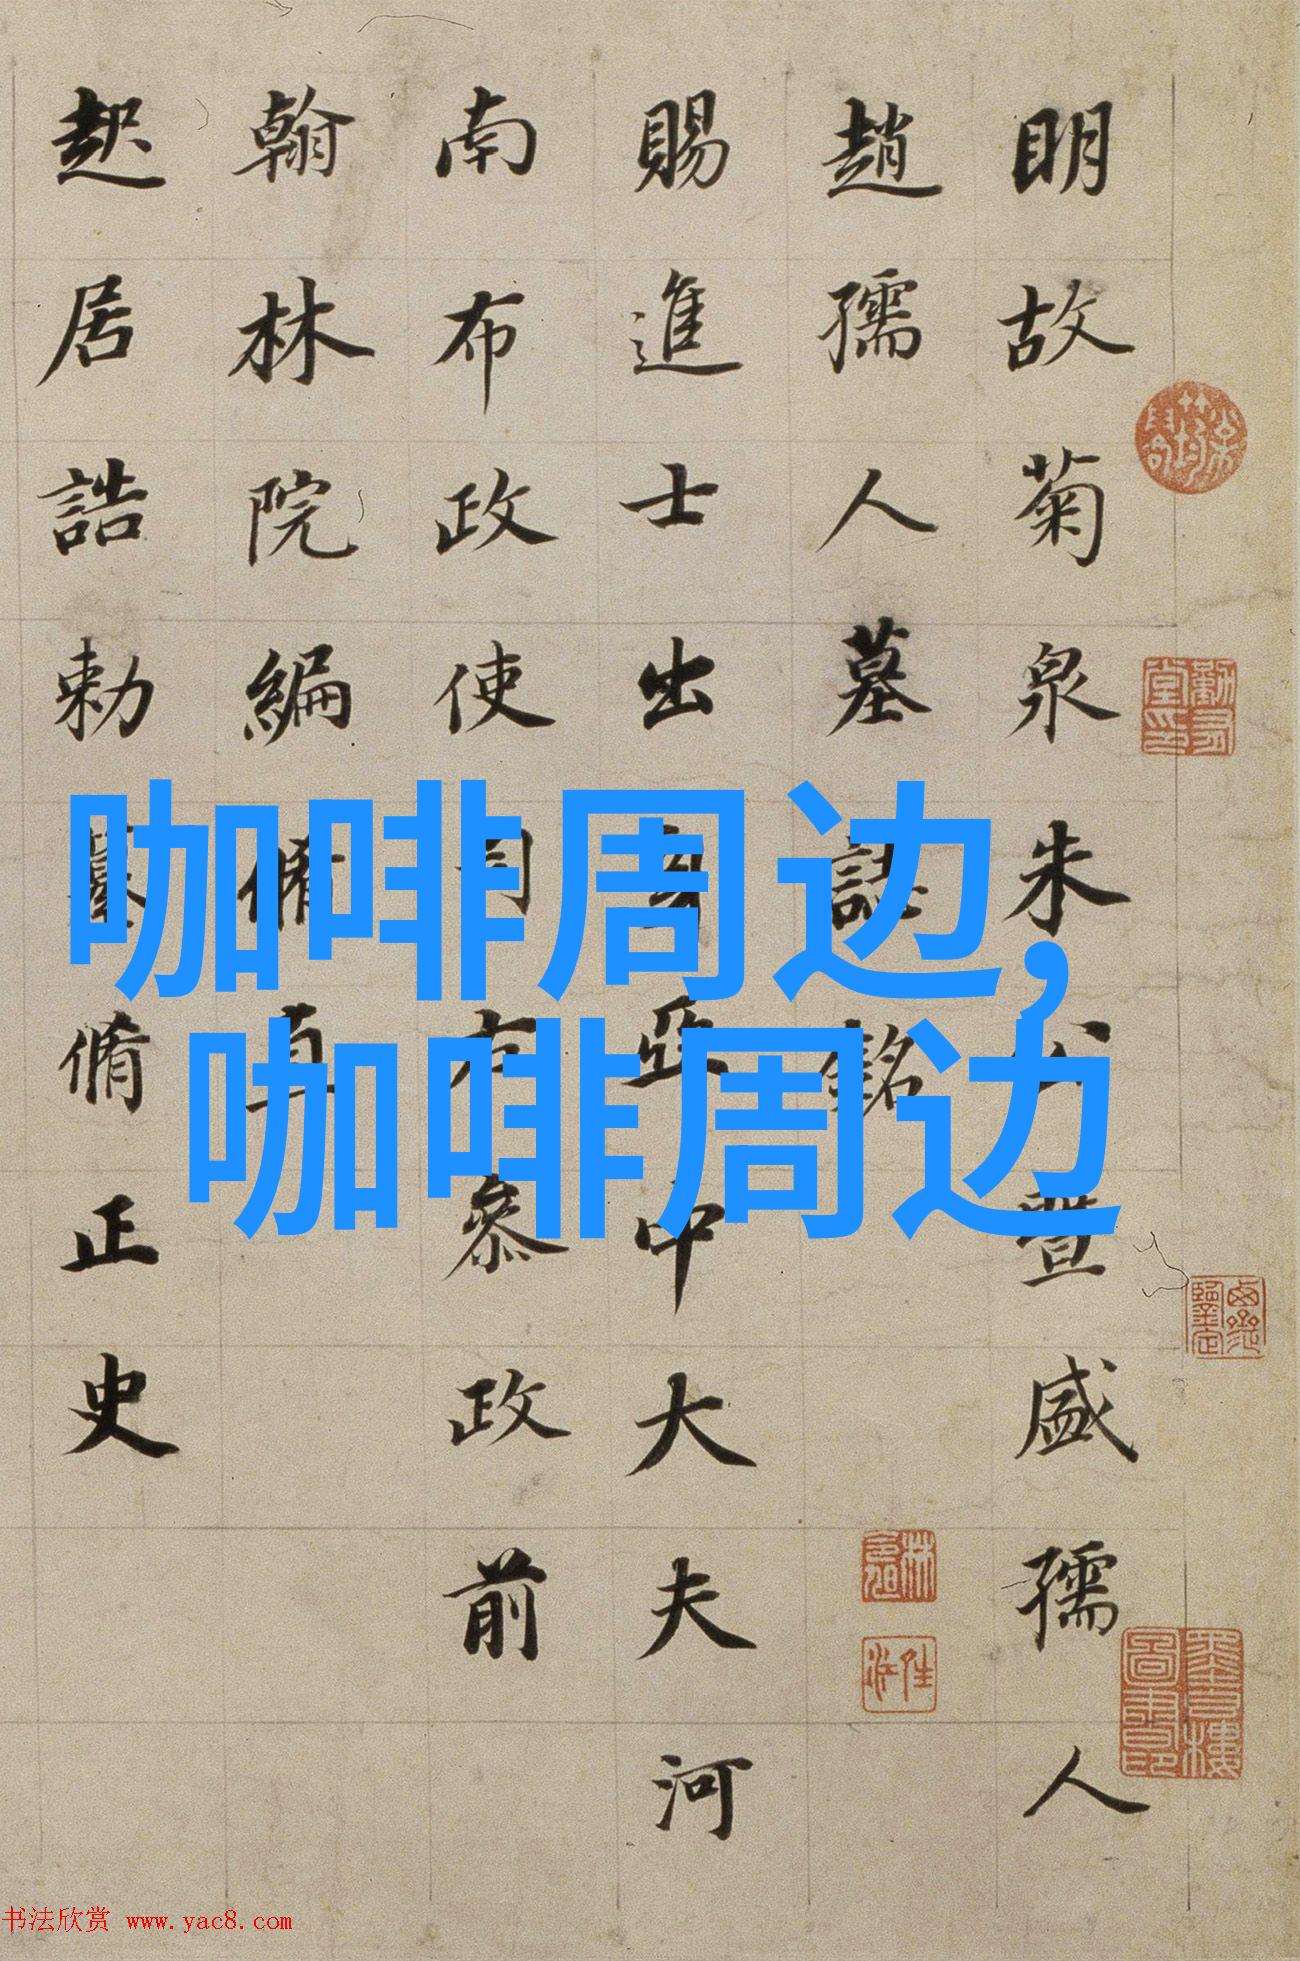 明故菊泉朱公暨盛孺人
趙孺人墓誌銘
賜進士出身亞中大夫河
南布政使司右叅政前
翰林院編脩直
起居誥勅纂脩正史
咖啡周边,
咖啡周边
书法欣赏 www.yac8.com